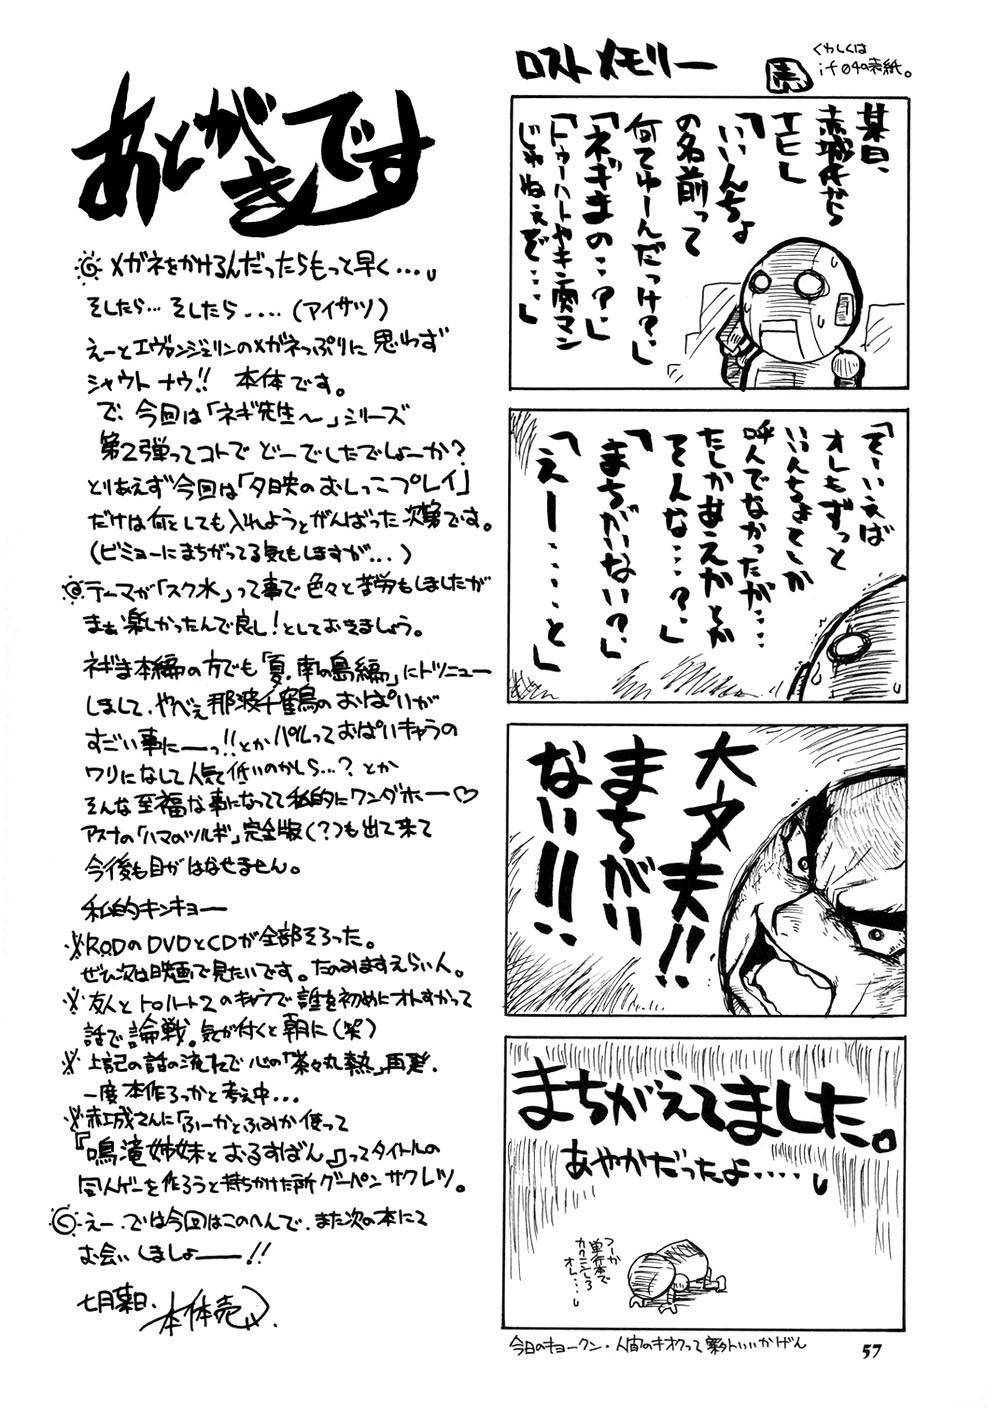 あとがきです
メガネをかけるんだったらもっと早く…。
そしたら…そしたら‥‥(アイサツ)
えーとエヴァンジェリンのメガネっぷりに思わず
シャウトナウ!! 本体です。
で、今回は「ネギ先生〜」シリーズ
第2弾ってコトでどーでしたでしょーか?
とりあえず今回は「夕映のおしっこプレイ」
だけは何としても入れようとがんばった次第です。
(ビミョーにまちがってる気もしますが…)
テーマが「スク水」って事で色々と苦労もしましたが
まぁ楽しかったんで良し!としておきましょう。
ネギま本編の方でも「夏、南の島編」にトツニュー
しまして、やべぇ那波千鶴のおぱいが
すごい事にーーっ!!とかパルっておぱいキャラの
ワリになして人気低いのかしら…?とか
そんな至福な事になってて私的にワンダホー♡
アスナの「ハマのツルギ」完全版(?)も出て来て
今後も目がはなせません。
私的キンキョー
RODのDVDとCDが全部そろった。
ぜひ次は映画で見たいです。たのみますえらい人。
友人とトゥハート2のキャラで誰を初めにオトすかって
話で論戦。気が付くと朝に(笑)
上記の話の流れで心の「茶々丸熱」再発。
一度本作ろっかと考え中…
赤城さんに「ふーかとふみか使って
『鳴滝姉妹とおるすばん』」ってタイトルの
同人ゲーを作ろうと持ちかけた所グーパンサクレツ。
えー、では今回はこのへんで、また次の本にて
お会いしましょーー!!
七月某日、本体売
ロストメモリー
くわしくは
if04の表紙。
某日、
赤城氏から
TELし
「いいんちょ
の名前って
何てゆーんだっけ?」
「ネギまの‥?」
「トゥーハートやキン肉マン
じゃねぇぞ…」
「そーいえば
オレもずっと
いいんちょとしか
呼んでなかったが‥‥
たしかあえかとか
そんな…?」
「まちがいない?」
「えー‥‥と」
大丈夫!!
まちがい
ない!!
まちがえてました。
あやかだったよ‥‥。
つーか
単行本で
カクニンしろ
オレ…。
今日のキョークン・人間のキオクって案外いいかげん
57